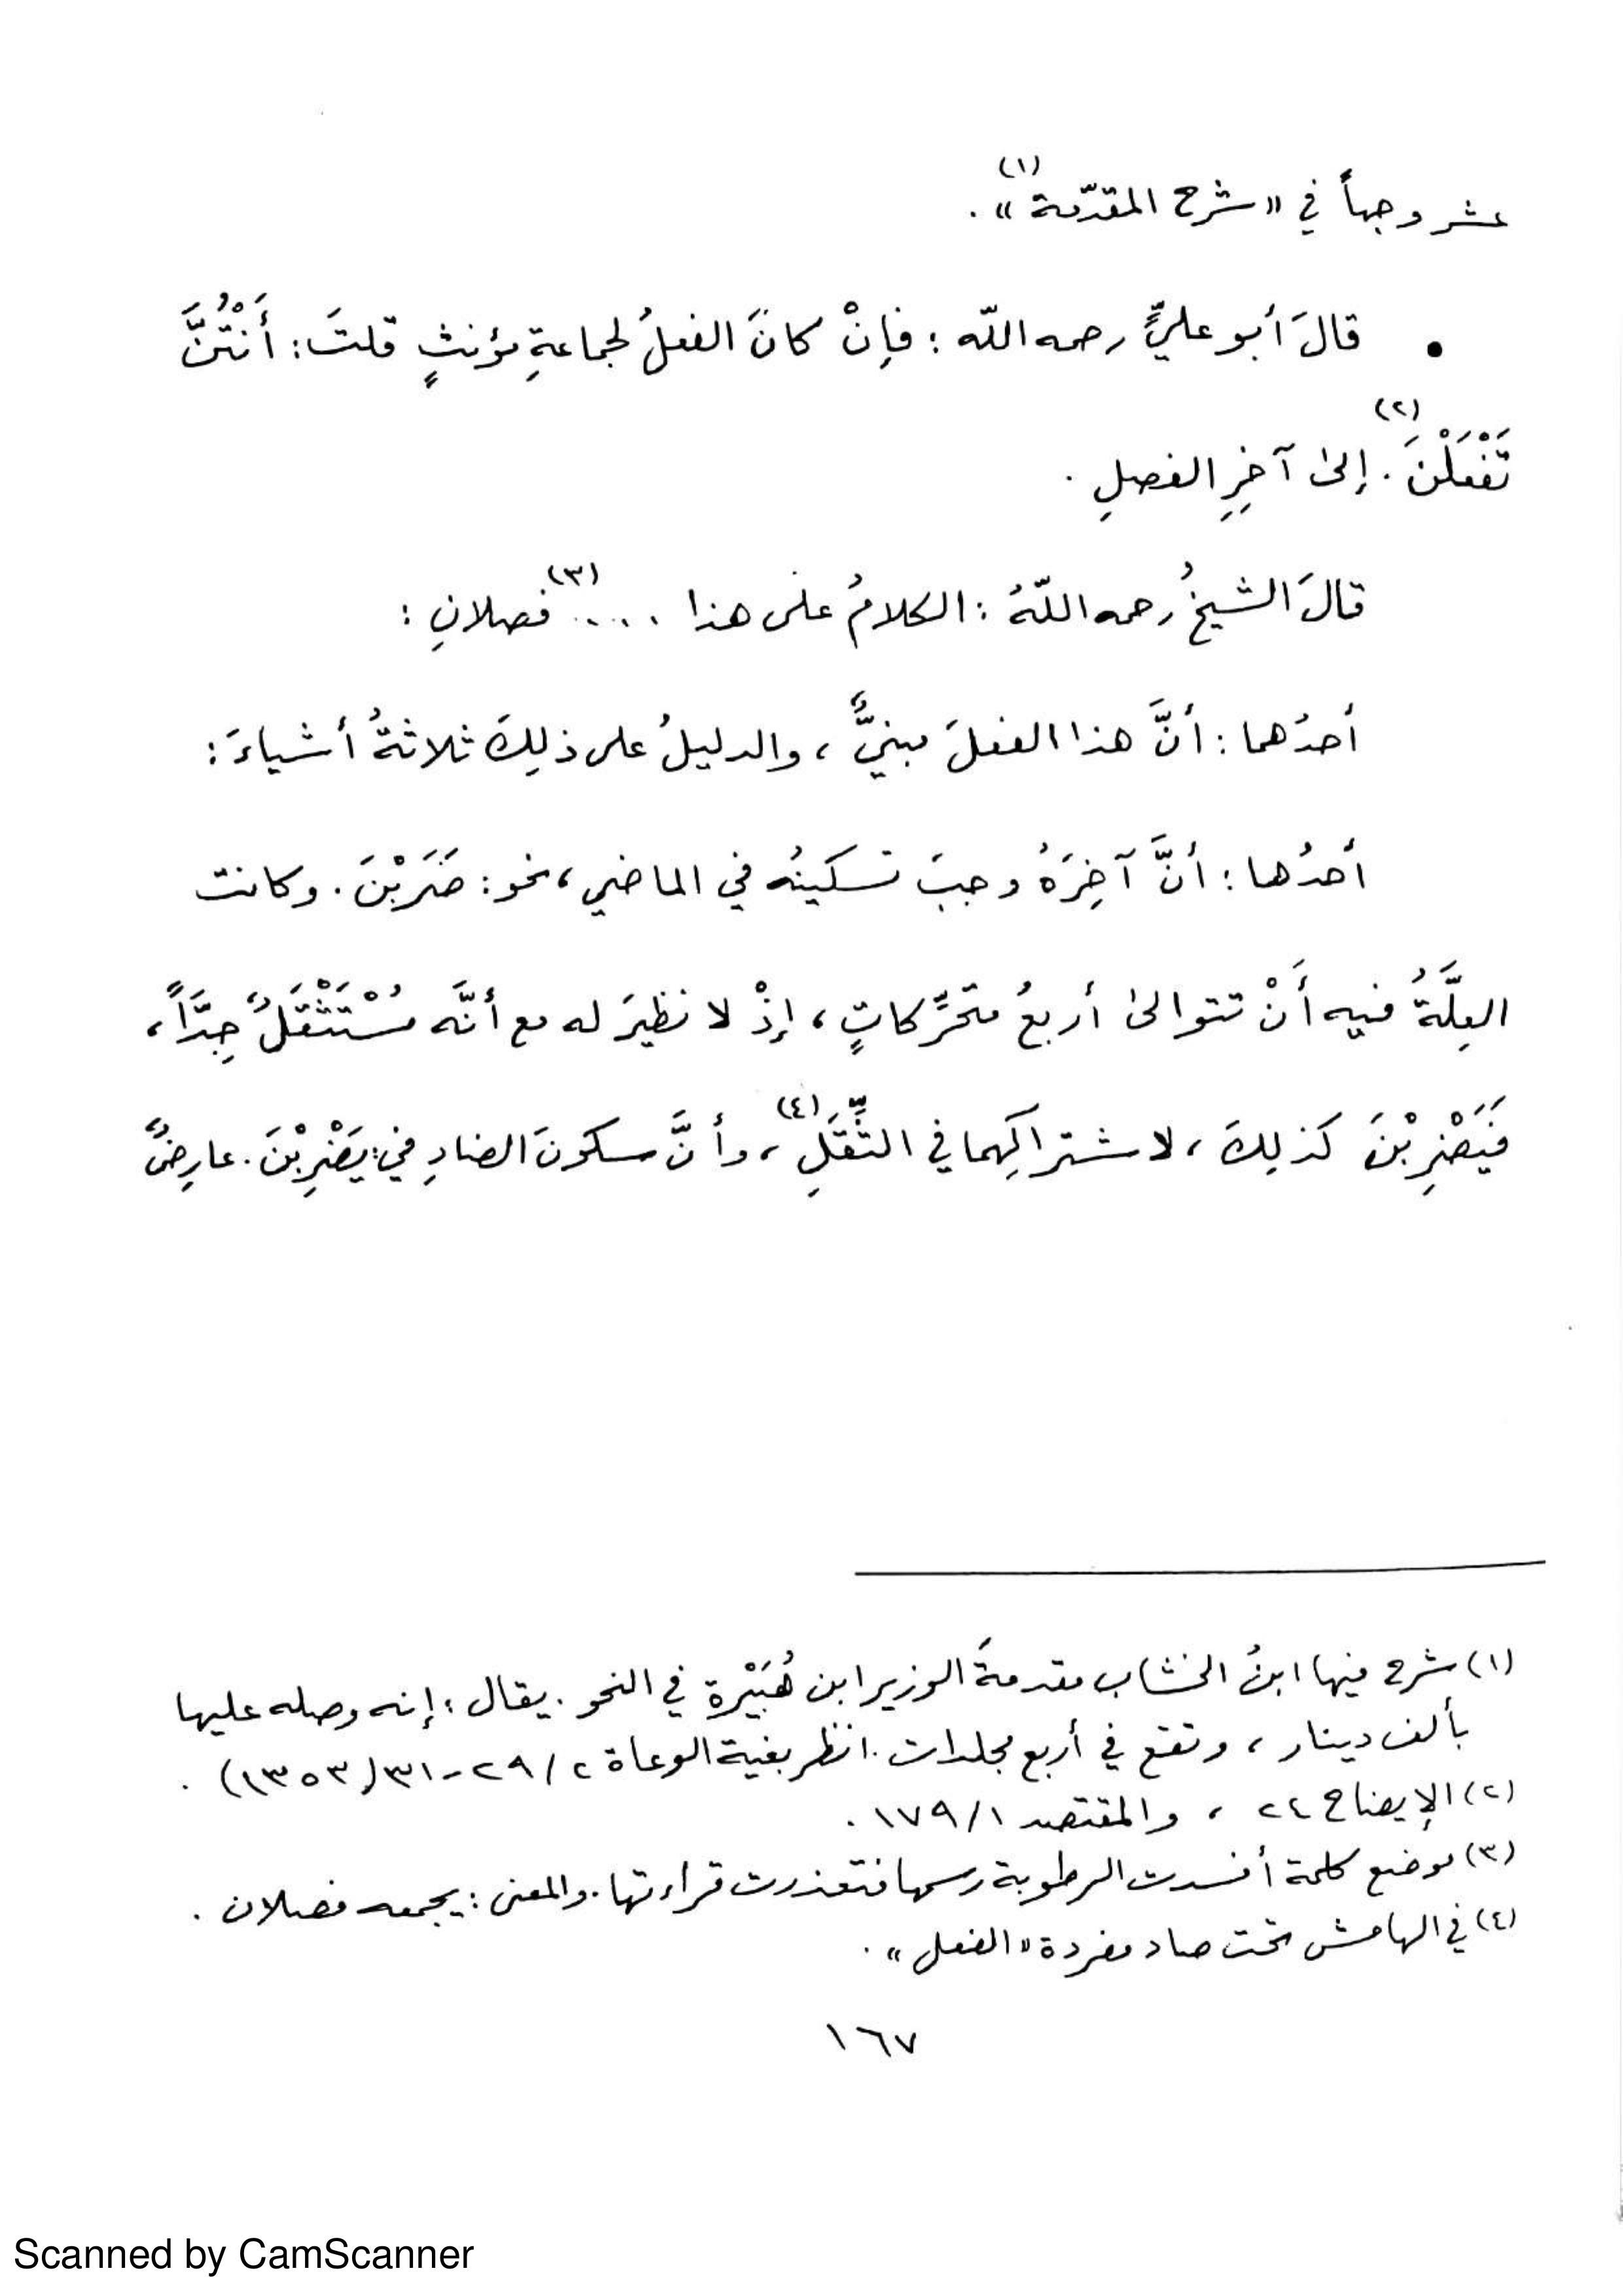 عشر وجهاً في «شرح المقدّمة(١)» .
• قالَ أبو عليٍّ رحمه اللّه : فإنْ كانَ الفعلُ لجماعةِ مؤنثٍ قلتَ: أَنْتُنَّ
تَفْعَلْنَ(٢) . إلى آخِرِ الفصلِ .
قالَ الشيخُ رحمه اللّهُ : الكلامُ على هذا ....(٣) فصلانِ :
أحدُهما : أنَّ هذا الفعلَ مبنيٌّ ، والدليلُ على ذلِكَ ثلاثةُ أشياءَ :
أحدُها : أنَّ آخِرَهُ وجبَ تسكينُه في الماضي ، نحو : ضَرَبْنَ . وكانت
العِلَّةُ فيه أَنْ تتوالى أربعُ متحرِّكاتٍ ، إذْ لا نظيرَ له مع أنَّه مُسْتَثْقَلٌ جِدَّاً ،
فَيَضْرِبْنَ كذلِكَ ، لاشتراكِهما في الثِّقَلِ(٤) ، وأنَّ سكونَ الضادِ في : يَضْرِبْنَ . عارِضٌ
(١) شرح فيها ابنُ الخشاب مقدمةَ الوزير ابن هُبَيْرة في النحو . يقال : إنه وصله عليها
بألف دينار ، وتقع في أربع مجلدات . انظر بغية الوعاة ٢ / ٢٩ - ٣١ (١٣٥٣) .
(٢) الإيضاح ٢٤ ، والمقتصد ١ / ١٧٩ .
(٣) موضع كلمة أفسدت الرطوبة رسمها فتعذرت قراءتها . والمعنى : يجمعه فصلان .
(٤) في الهامش تحت صاد مفردة «الفعل» .
١٦٧
Scanned by CamScanner